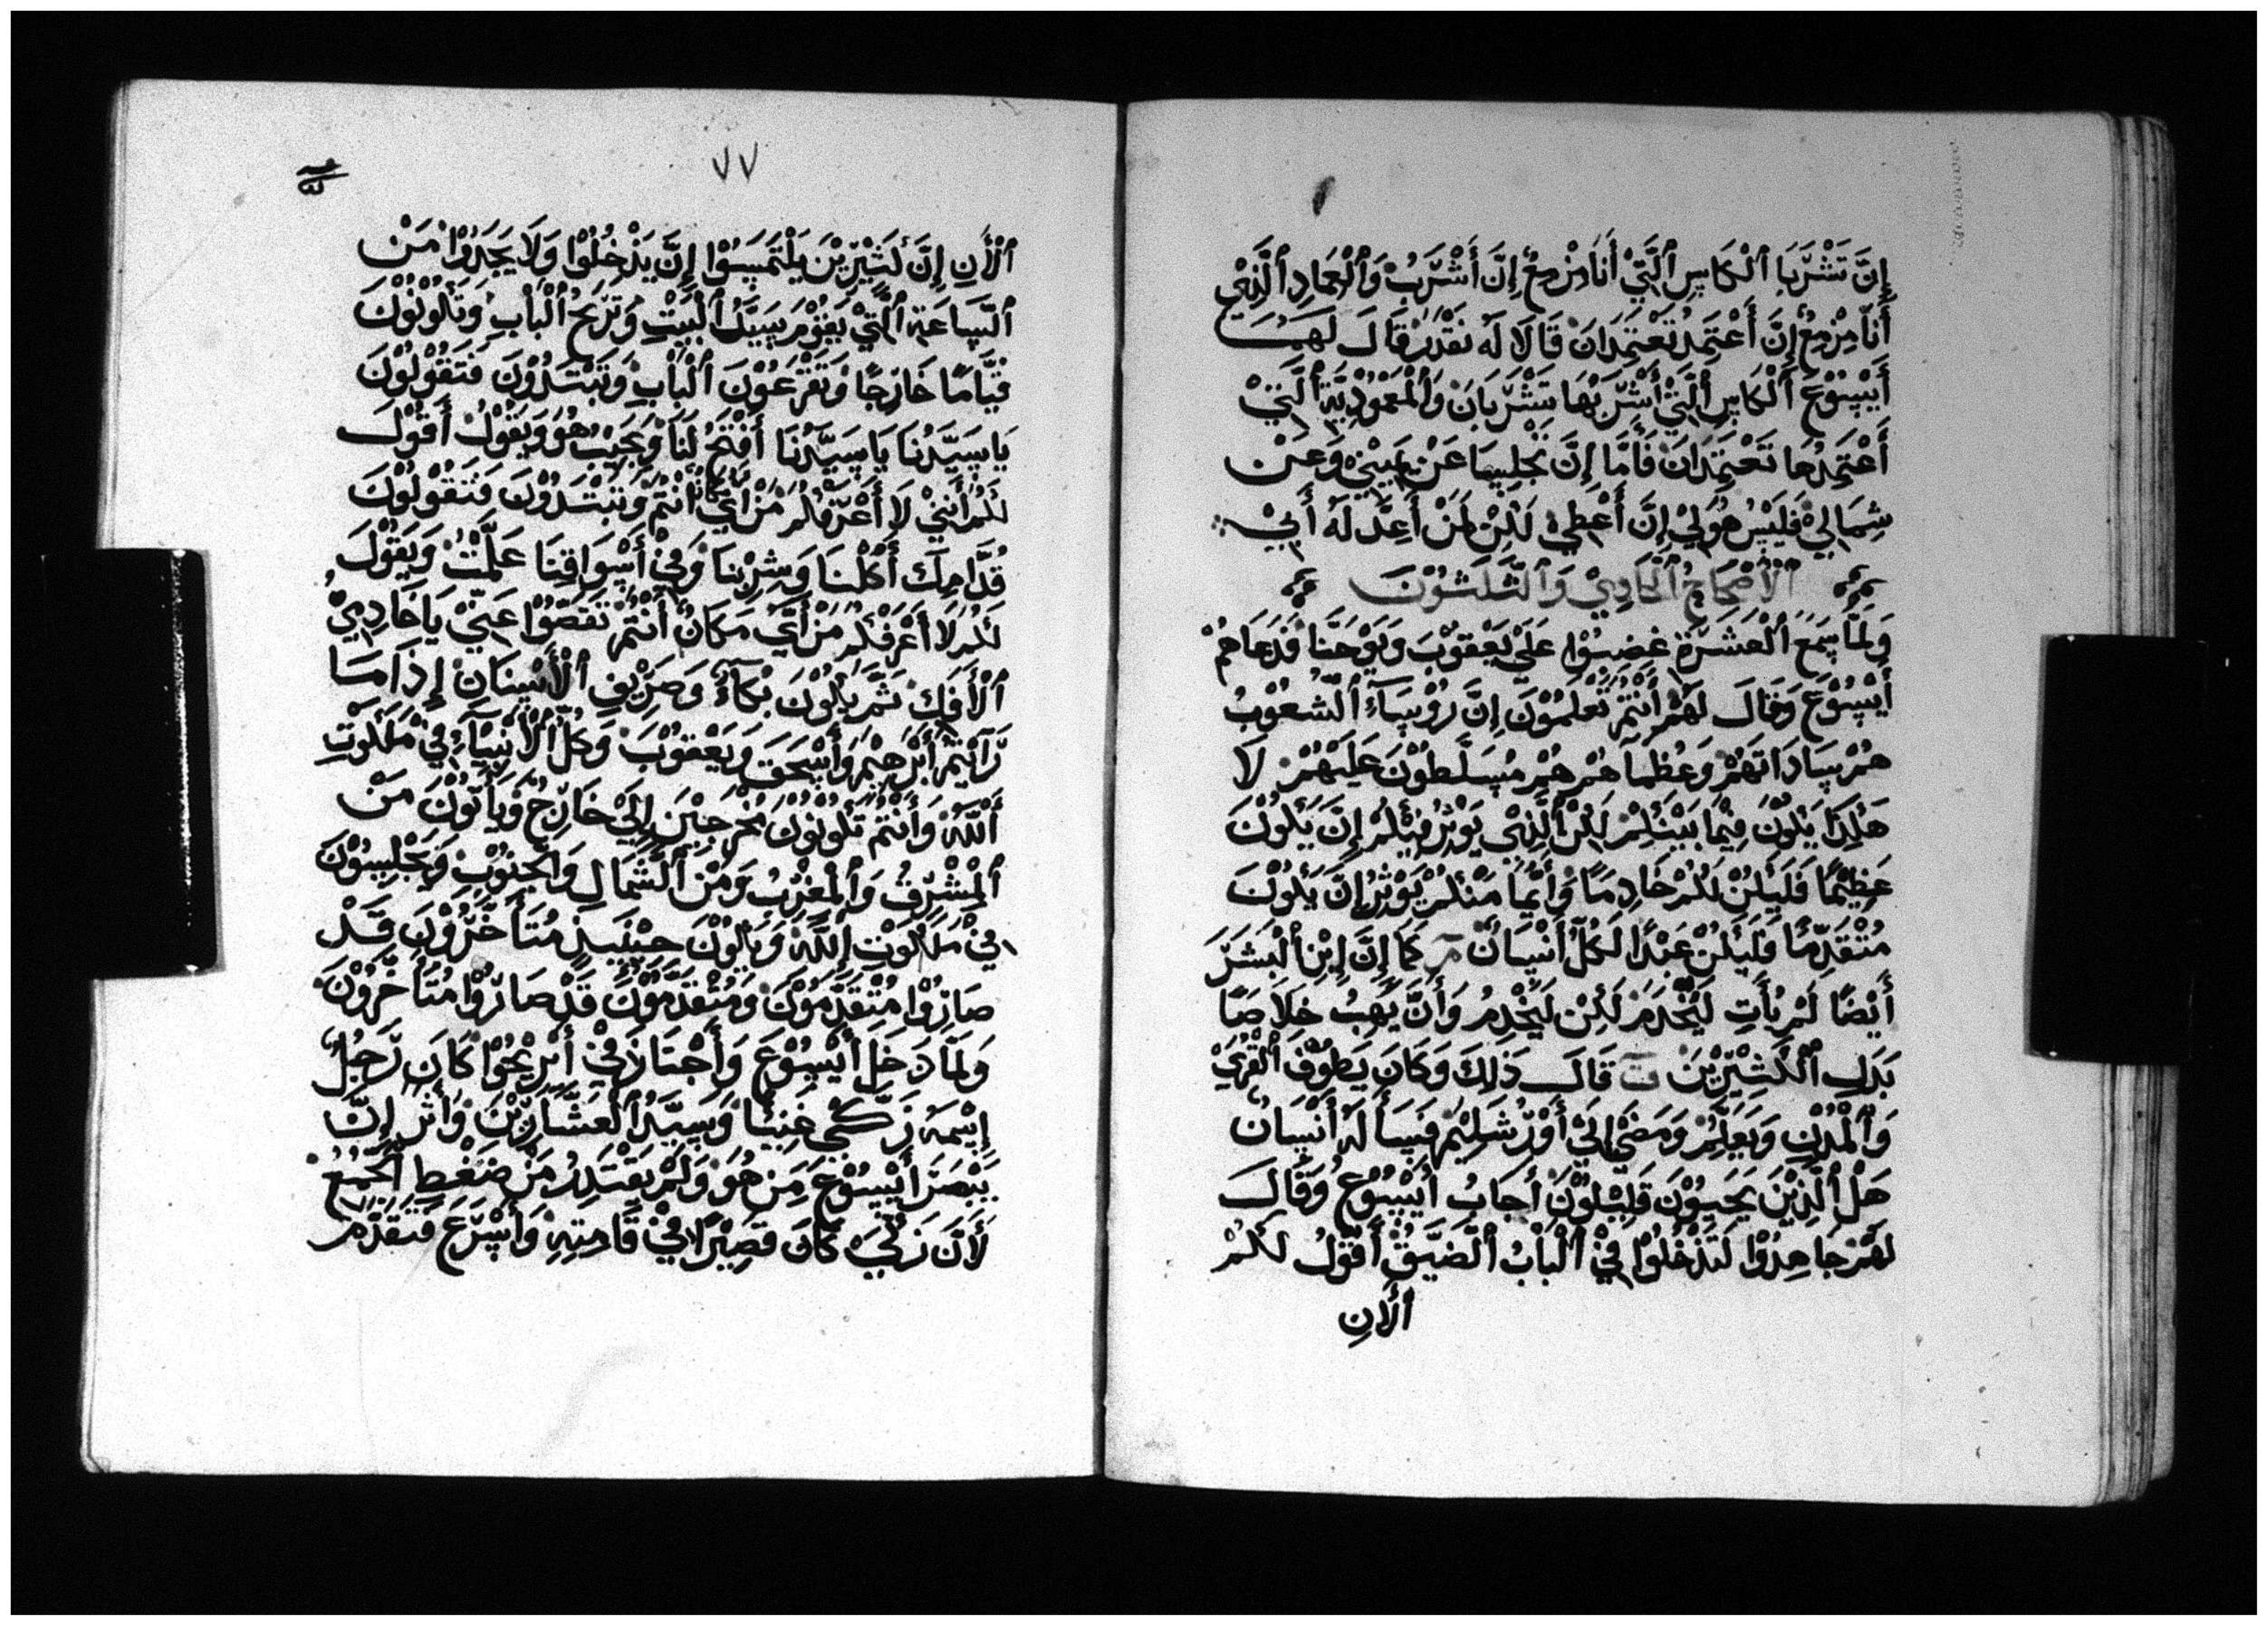 إِنَّ تَشْرَبَا ٱلْكَاسِ ٱلَّتِيْ أَنَا مِزْمِعٌ إِنَّ أَشْرَبُ وَٱلْعَمَادِ ٱلَّذِيْ
أَنَا مِزْمِعٌ إِنَّ أَعْتَمِدُ تَعْتَمِدَانَ قَالَا لَهُ نَقْدَرُ قَالَ لَهُمَـا
أَيْسُوْعَ ٱلْكَاسِ ٱلَّتِيْ أَشْرَبْهَا تَشْرَبَانَ وَٱلْمَعْمُوْدِيَّةِ ٱلَّتِيْ
أَعْتَمِدُهَا تَعْتَمِدَانَ فَأَمَّا إِنَّ تَجْلِسَا عَنْ يَمِيْنِيْ وَعَـنْ
شِمَالِيْ فَلَيْسَ هُوَ لِيْ إِنَّ أَعْطِيْ لَكِنْ لِمَنْ أَعِدَّ لَهُ أَبِيْ
ٱلْأَصْحَاحُ ٱلْحَادِيْ وَٱلثَّلَثُوْنَ
وَلَمَّا سَمِعَ ٱلْعَشَرَةِ غَضِبُوْا عَلَيْ يَعْقُوْبَ وَيُوْحَنَّا فَدَعَاهُمْ
أَيْسُوْعَ وَقَالَ لَهُمْ أَنْتُمْ تَعْلَمُوْنَ إِنَّ رُوْسَآءَ ٱلشُّعُوْبُ
هُمْ سَادَاتَهُمْ وَعُظَمَآهُمْ هُمْ مُسَلَّطُوْنَ عَلَيْهُمْ لَا
هَكَذَا يَكُوْنُ فِيْمَا بَيْنَكُمْ لَكِنْ ٱلَّذِيْ يُوْثِرُ فِيْكُمْ إِنَّ يَكُوْنَ
عَظِيْمًا فَلْيَكُنْ لَكُمْ خَادِمًا وَأَيْمًا مَنْكُمْ يُوْثِرُ إِنَّ يَكُوْنَ
مُتْقَدِّمًا فَلْيَكُنْ عَبْدًا لَكُلِّ أَنْسَانٌ مر كَمَا إِنَّ إِبْنِ ٱلْبَشَرَ
أَيْضًا لَمْ يَأَتِ لَيُخْدَمَ لَكِنْ لَيَخْدِمُ وَأَنَّ يَهِبُ خَلَاصًا
بَدَلِ ٱلْكَثِيْرِيْنَ ت قَالَ ذَلِكَ وَكَانَ يَطُوْفُ ٱلْقُرَيْ
وَٱلْمُدْنِ وَيَعَلِّمُ وَمَضَيْ إِلَيْ أَوْرْشَلِيْمَ فَسَأَلَهُ أَنْسَانٌ
هَلْ ٱلَّذِيْنَ يَحْيَوْنَ قَلِيْلُوْنَ أَجَابُ أَيْسُوْعُ وَقَالَ
لَهُمْ جَاهِدُوْا لَتَدْخُلُوْا فِيْ ٱلْبَابُ ٱلضَّيِّقُ أَقُوْلُ لَكُمْ
ٱلْأَنِ
٧٧
ٱلْأَنِ إِنَّ كَثِيْرِيْنَ يَلْتَمِسُوْا إِنَّ يَدْخُلُوْا وَلَا يَجَدُوْا مَنْ
ٱلسَّاعَةِ ٱلَّتِيْ يَقُوْمَ سَيِّدُ ٱلْبَيْتِ وَيَرْتِجُ ٱلْبَابِ وَتَكُوْنُوْنَ
قِيَّامًا خَارِجًا وَتَقْرَعُوْنَ ٱلْبَابِ وَتَبْتَدُوْنَ فَتَقُوْلُوْنَ
يَا سَيِّدُنَا يَا سَيِّدُنَا أَفْتَحُ لَنَا وَيَجَيْبُ هُوَ وَيَقُوْلُ أَقُوْلُ
لَكُمْ أَنَّنِيْ لَا أَعْرَفْكُمْ مَنْ أَيِّ مَكَانٌ أَنْتُمْ وَتَبْتَدُوْنَ فَتَقُوْلُوْنَ
قُدَّامِكَ أَكَلْنَا وَشِرْبْنَا وَفِيْ أَسْوَاقِنَا عَلَّمْتَ وَيَقُوْلَ
لَكُمْ لَا أَعْرَفْكُمْ مَنْ أَيِّ مَكَانٌ أَنْتُمْ تَقَصُّوْا عَنِّيْ يَا خَادِمِيْ
ٱلْأَفَكِ ثَمَّ يَكُوْنَ بُكَآءٌ وَصَرِيْفِ ٱلْأَسْنَانِ إِذَا مَا
رَأَيْتُمْ أَبْرَهِيْمَ وَأَيْسَحَقَ وَيَعْقُوْبَ وَكُلِّ ٱلْأَنْبِيَآءَ فِيْ مَلَكُوْتِ
أَللَّهُ وَأَنْتُمْ تَكُوْنُوْنَ مُخْرَجِيْنَ إِلَيْ خَارِجٌ وَيَأَتُوْنَ مَنْ
ٱلْمَشْرِقُ وَٱلْمَغْرِبُ وَمَنْ ٱلشِّمَالِ وَٱلْجَنُوْبِ وَيَجْلِسُوْنَ
فِيْ مَلَكُوْتِ إِللَّهَ وَيَكُوْنَ حِيْنَيِذٍ مُتَأَخَّرُوْنَ قَـدْ
صَارُوْا مُتْقَدِّمُوْنَ وَمُتْقَدِّمُوْنَ قَدْ صَارُوْا مُتَأَخَّرُوْنَ
وَلَمَّا دَخَلَ أَيْسُوْعَ وَأَجْتَازَ فِيْ أَرِيْحُوْا كَانَ رَجُلٌ
إِسْمَهُ زَكَّيْ غَنِيًّا وَسَيِّدُ ٱلْعَشَّارِيْنَ وَأَثَرِ إِنَّ
يَبْصَرَ أَيْسُوْعَ مِنْ هُوَ وَلَمْ يَقْتَدِرُ مَنْ ضَغْطِ ٱلْجَمْعُ
لَأَنَّ زَكَّيْ كَانَ قَصِيْرًا فِيْ قَامِتِهِ وَأَسْرَعَ فَتَقَدَّمَ